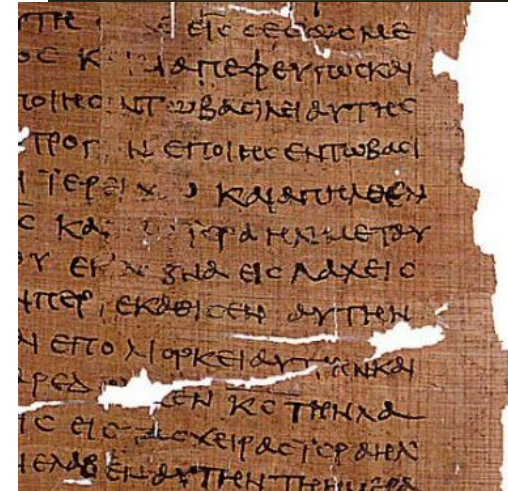 ΥΤΗ ΕΙϹ ϹΕϹΩϹΜΕ
ΟϹ Κ ΙΑΠΕΦΕΥΓΩϹΚΑΙ
ΠΟΙΗϹ ΝΤΩΒΑϹΙΛΕΙΑΥΤΗϹ
ΤΡΟΠ Ν ΕΠΟΙΗϹΕΝΤΩΒΑϹΙ
Ι ΙΕΡΕΙΧ ΚΑΙΑΠΗΛΘΕΝ
Ϲ ΚΑΙ ΙϹΡΑΗΛΜΕΤΑΥ
Υ ΕΚ ΔΑ ΕΙϹ ΛΑΧΕΙϹ
ΠΕΡΙΕΚΑΘΙϹΕΝ ΑΥΤΗΝ
Ι ΕΠΟΛΙΟΡΚΕΙΑΥΤΗΝΚΑΙ
ΑΡΕΔ ΚΕΝ ΚϹ ΤΗΝΛΑ
ΙϹ ΕΙϹ ΑϹΧΕΙΡΑϹΙϹΡΑΗΛ
Ι ΕΛΑΒΕΝΑΥΤΗΝΤΗΗΜΕΡΑ